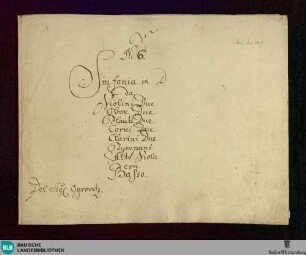 N: 6.
Sinfonia in D
Da
Violini Due
Oboe Due
Flauti Due
Corni Due
Clarini Due
Tympani
Alto Viola
con
Basso.
Del Sigl Gyrovetz
BLB
BADISCHE
LANDESBIBLIOTHEK
Baden-Württemberg